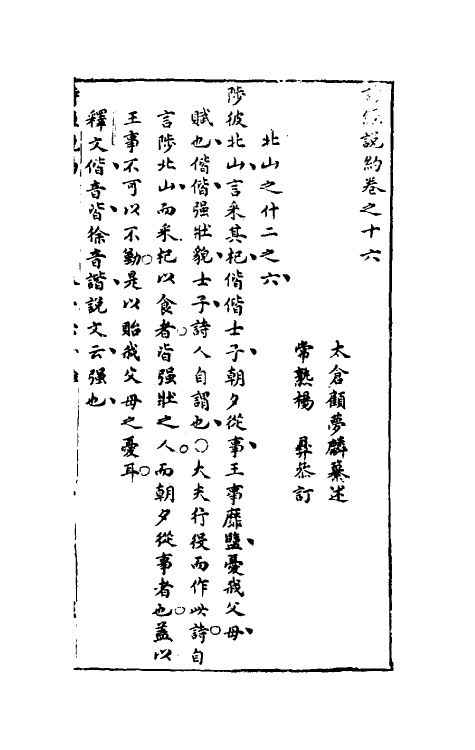 詩經說約卷之十六
太倉顧夢麟纂述
常熟楊 彝叅訂
北山之什二之六
陟彼北山言采其杞偕偕士子朝夕從事王事靡盬憂我父母
賦也偕偕强壯貌士子詩人自謂也○大夫行役而作此詩自
言陟北山而采杞以食者皆强壯之人而朝夕從事者也蓋以
王事不可以不勤是以貽我父母之憂耳
釋文偕音皆徐音諧說文云强也